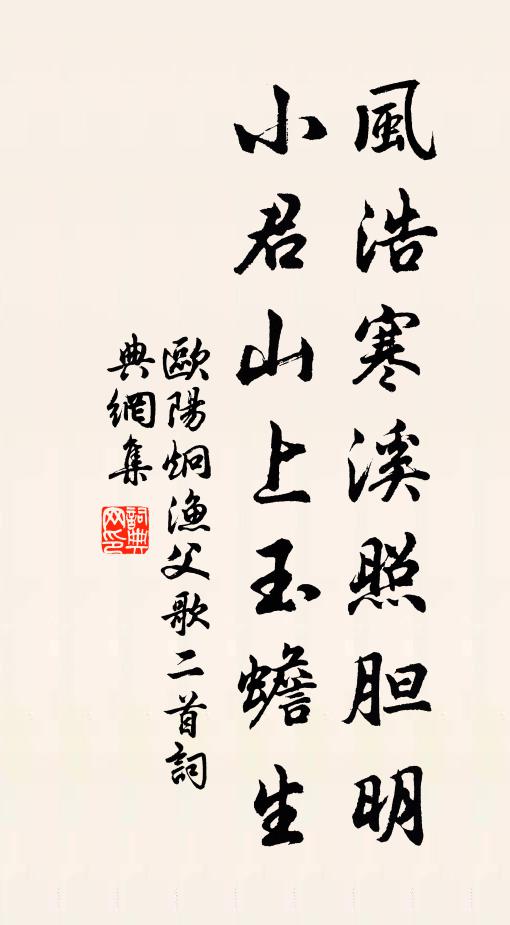 風浩寒溪照胆明
小君山上玉蟾生
歐陽炯漁父歌二首詞
典網集
詞典網印